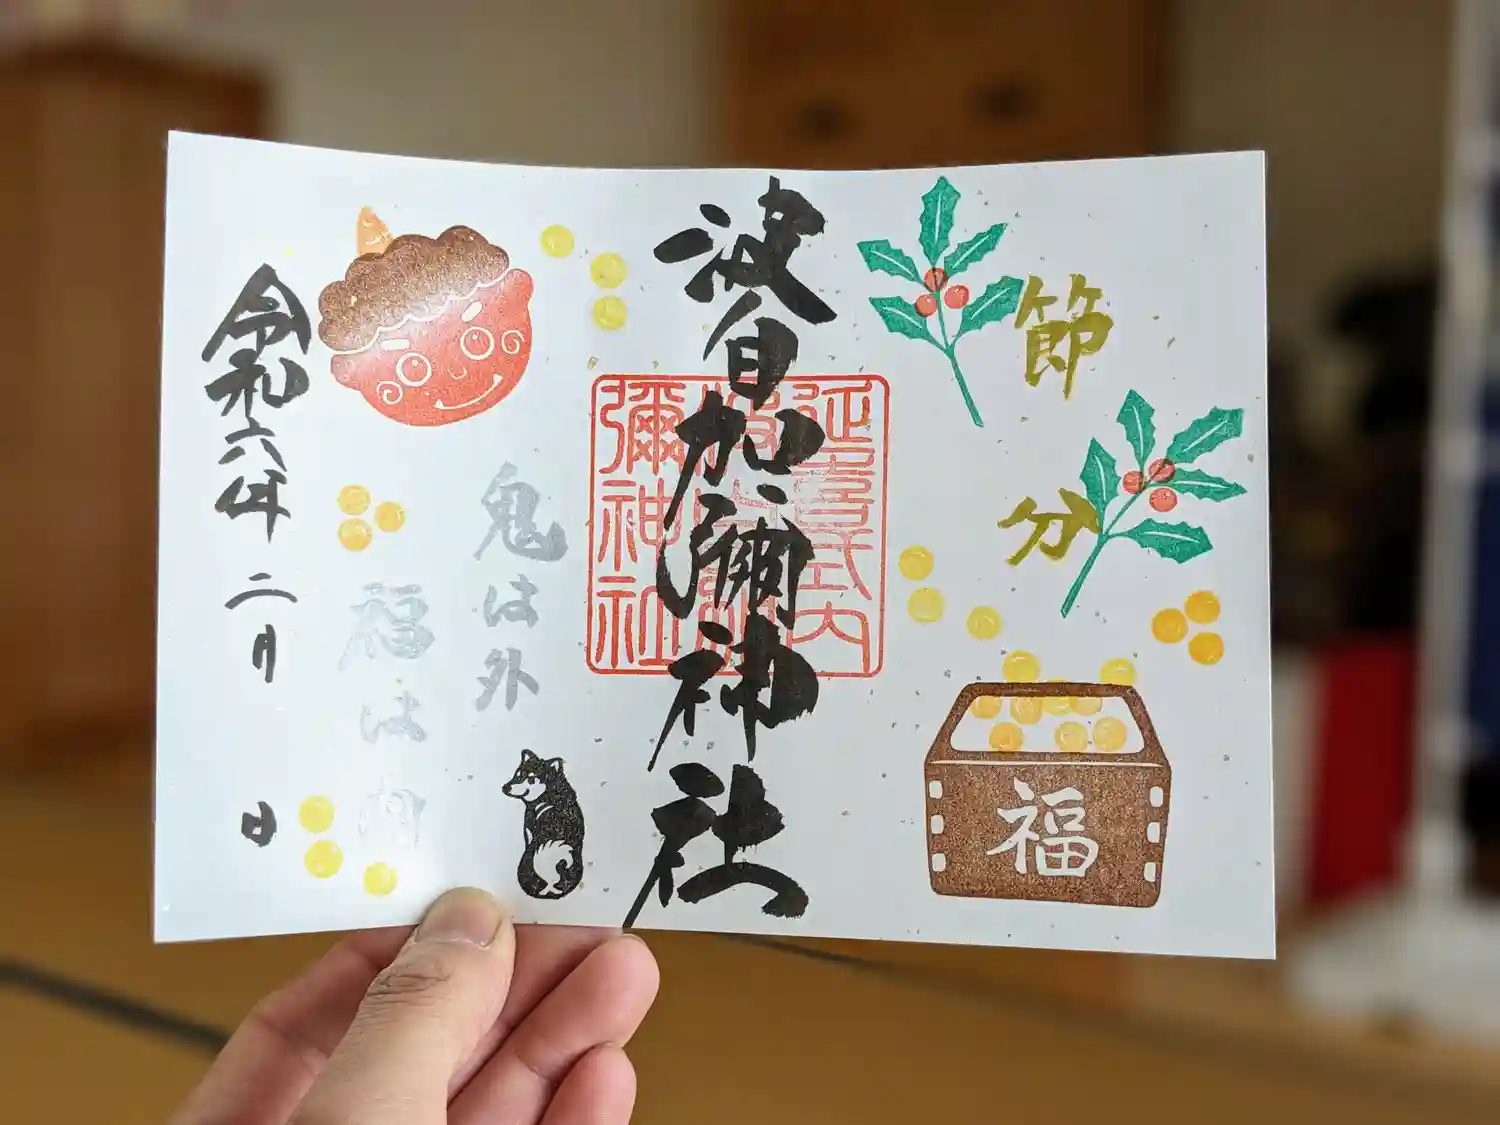 節分
福
波自加彌神社
延喜式内
波自加
彌神社
鬼は外
福は内
令和六年 二月 日